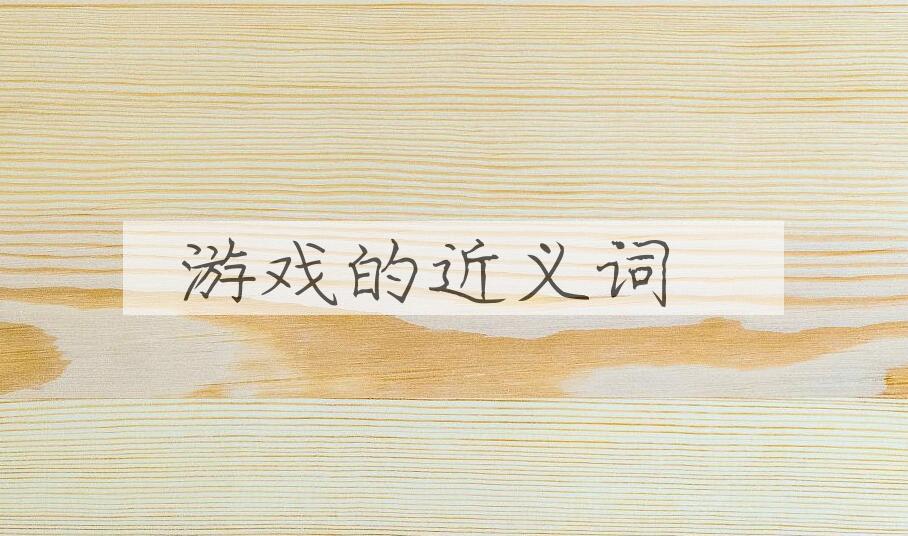 游戏的近义词